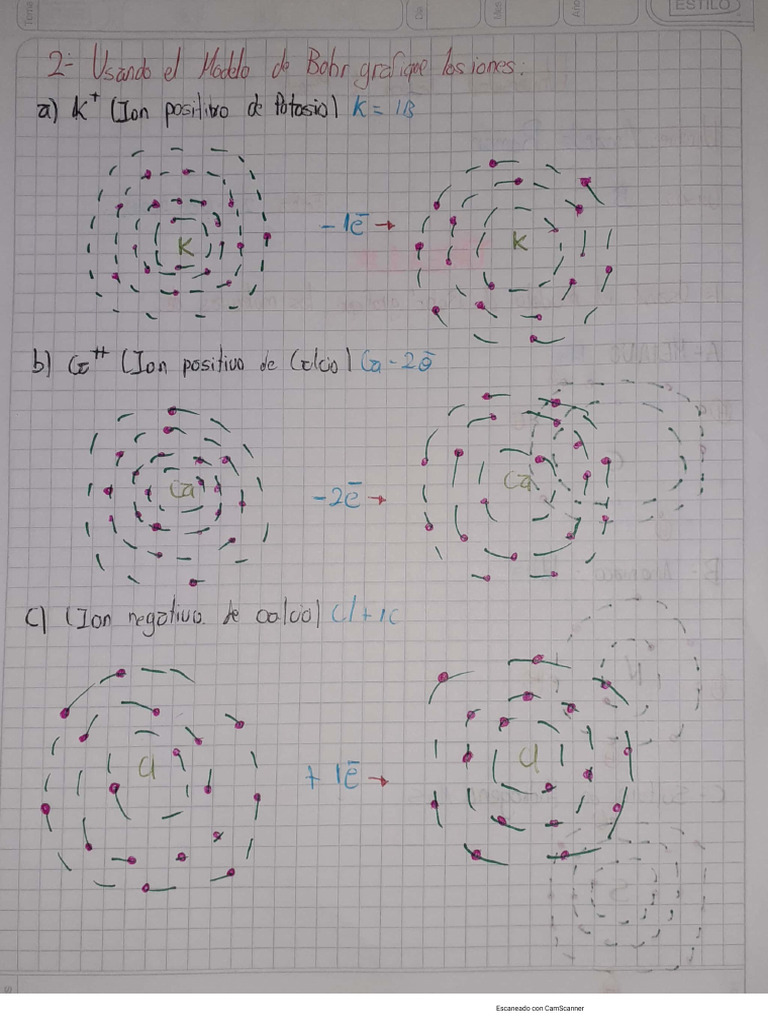 Tema
De
Mes
Año
ESTILO
2- Usando el Modelo de Bohr grafique los iones:
a) K⁺ (Ion positivo de Potasio) K = 18
K
- 1ē →
K
b) Ca⁺⁺ (Ion positivo de Calcio) Ca - 2ē
Ca
- 2ē →
Ca
c) (Ion negativo de calcio) Cl + 1e
Cl
+ 1ē →
Cl
Escaneado con CamScanner